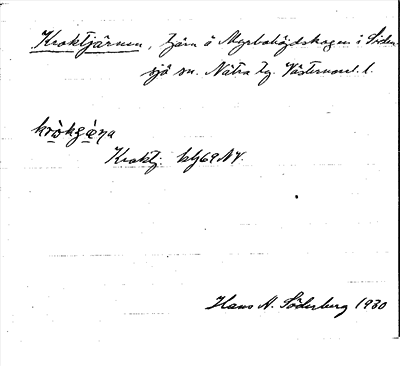 Kroktjärnen, tjärn å Myrbohöjdskogen i Siden-
sjö sn. Nätra tg. Västernorrl. l.
kròkgæ̀ṇa
Kroktj. blg 69 NV.
Hans A. Söderberg 1930